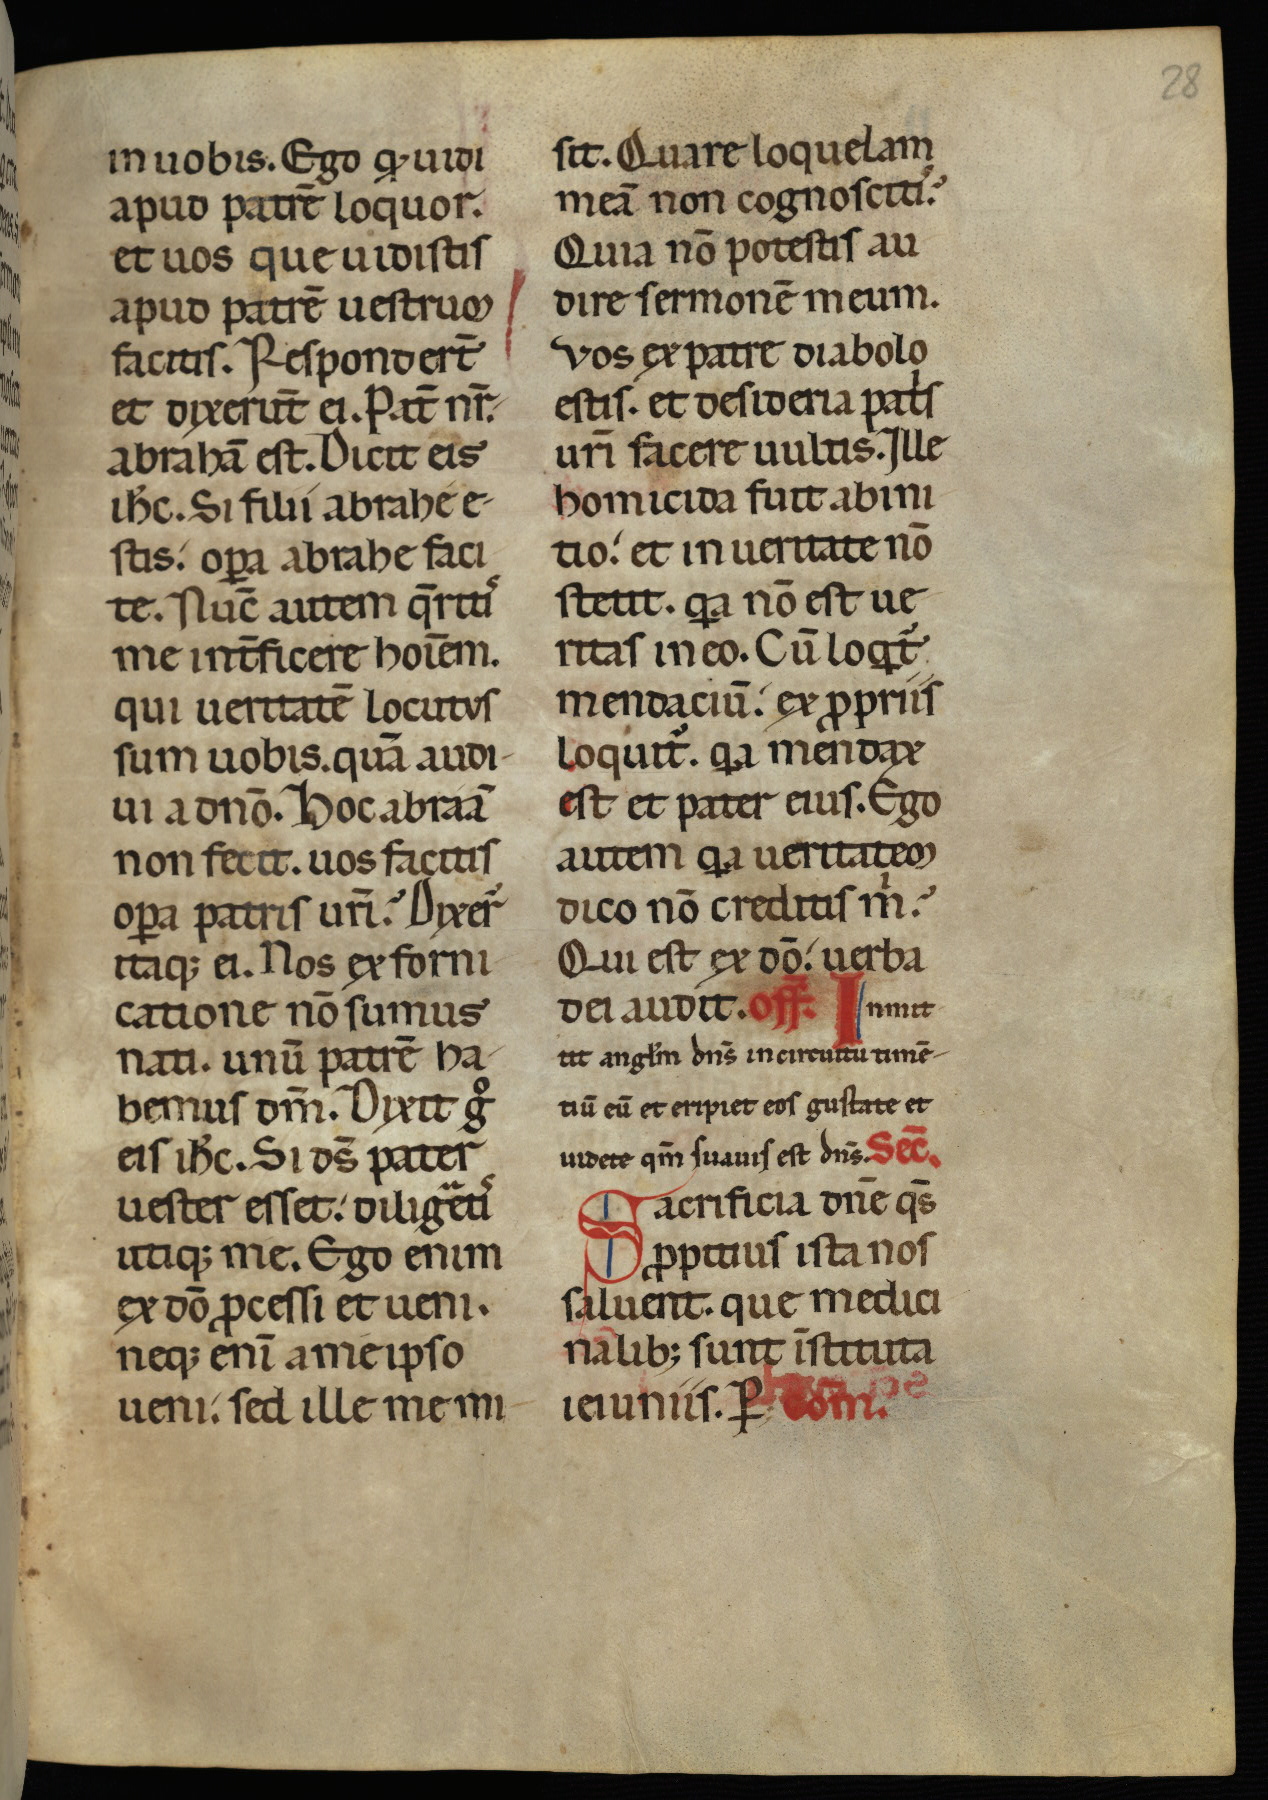 28
in uobis. Ego qͥ uidi
apud patrē loquor.
et uos que uidistis
apud patrē uestrum
facitis. Respondert̄
et dixerūt ei. Pat̄ nr̄.
abrahā est. Dicit eis
ih̄c. Si filii abrahe e-
stis. oꝑa abrahe faci
te. Nūc autem q̄ritiˢ
me int̄ficere hoīem.
qui ueritatē locutus
sum uobis. quā audi-
ui a dnō. Hoc abraā
non fecit. uos facitis
oꝑa patris urī. Dixer̄
itaqꝫ ei. Nos ex forni
catione nō sumus
nati. unū patrē ha-
bemus dm̄. Dixit gͦ
eis ih̄c. Si ds̄ pater
uester esset. diligētiˢ
utiqꝫ me. Ego enim
ex dō ꝓcessi et ueni.
neqꝫ enī a me ipso
ueni. sed ille me mi-
sit. Quare loquelam
meā non cognoscitiˢ.
Quia nō potestis au
dire sermonē meum.
Vos ex patre diabolo
estis. et desideria patͥs
urī facere uultis. Ille
homicida fuit ab ini
tio. et in ueritate nō
stetit. qꝛa nō est ue
ritas in eo. Cū loqͥt᷑
mendaciū. ex ꝓpriis
loquit᷑. qꝛa mendax
est et pater eius. Ego
autem qꝛa ueritatem
dico nō creditis mͥ.
Qui est ex dō. uerba
dei audit. Off̄. Inmit-
tit angl̄m dn̄s in circuitu timē-
tiū eū et eripiet eos gustate et
uidete qm̄ suauis est dn̄s. Sec̄.
Sacrificia dn̄e qs̄
ꝓpitius ista nos
saluent. que medici
nalibꝫ sunt īstituta
ieiuniis. P̱ com.